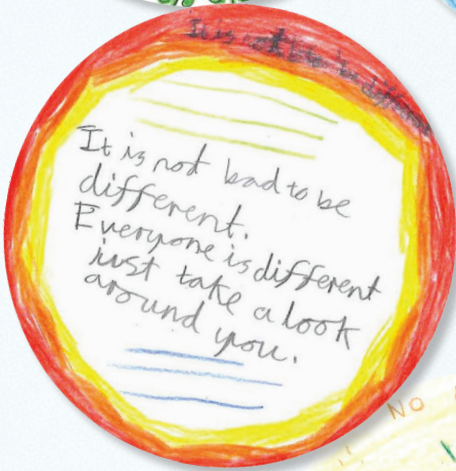 It is not bad to be
It is not bad to be
different.
Everyone is different
just take a look
around you.
NO